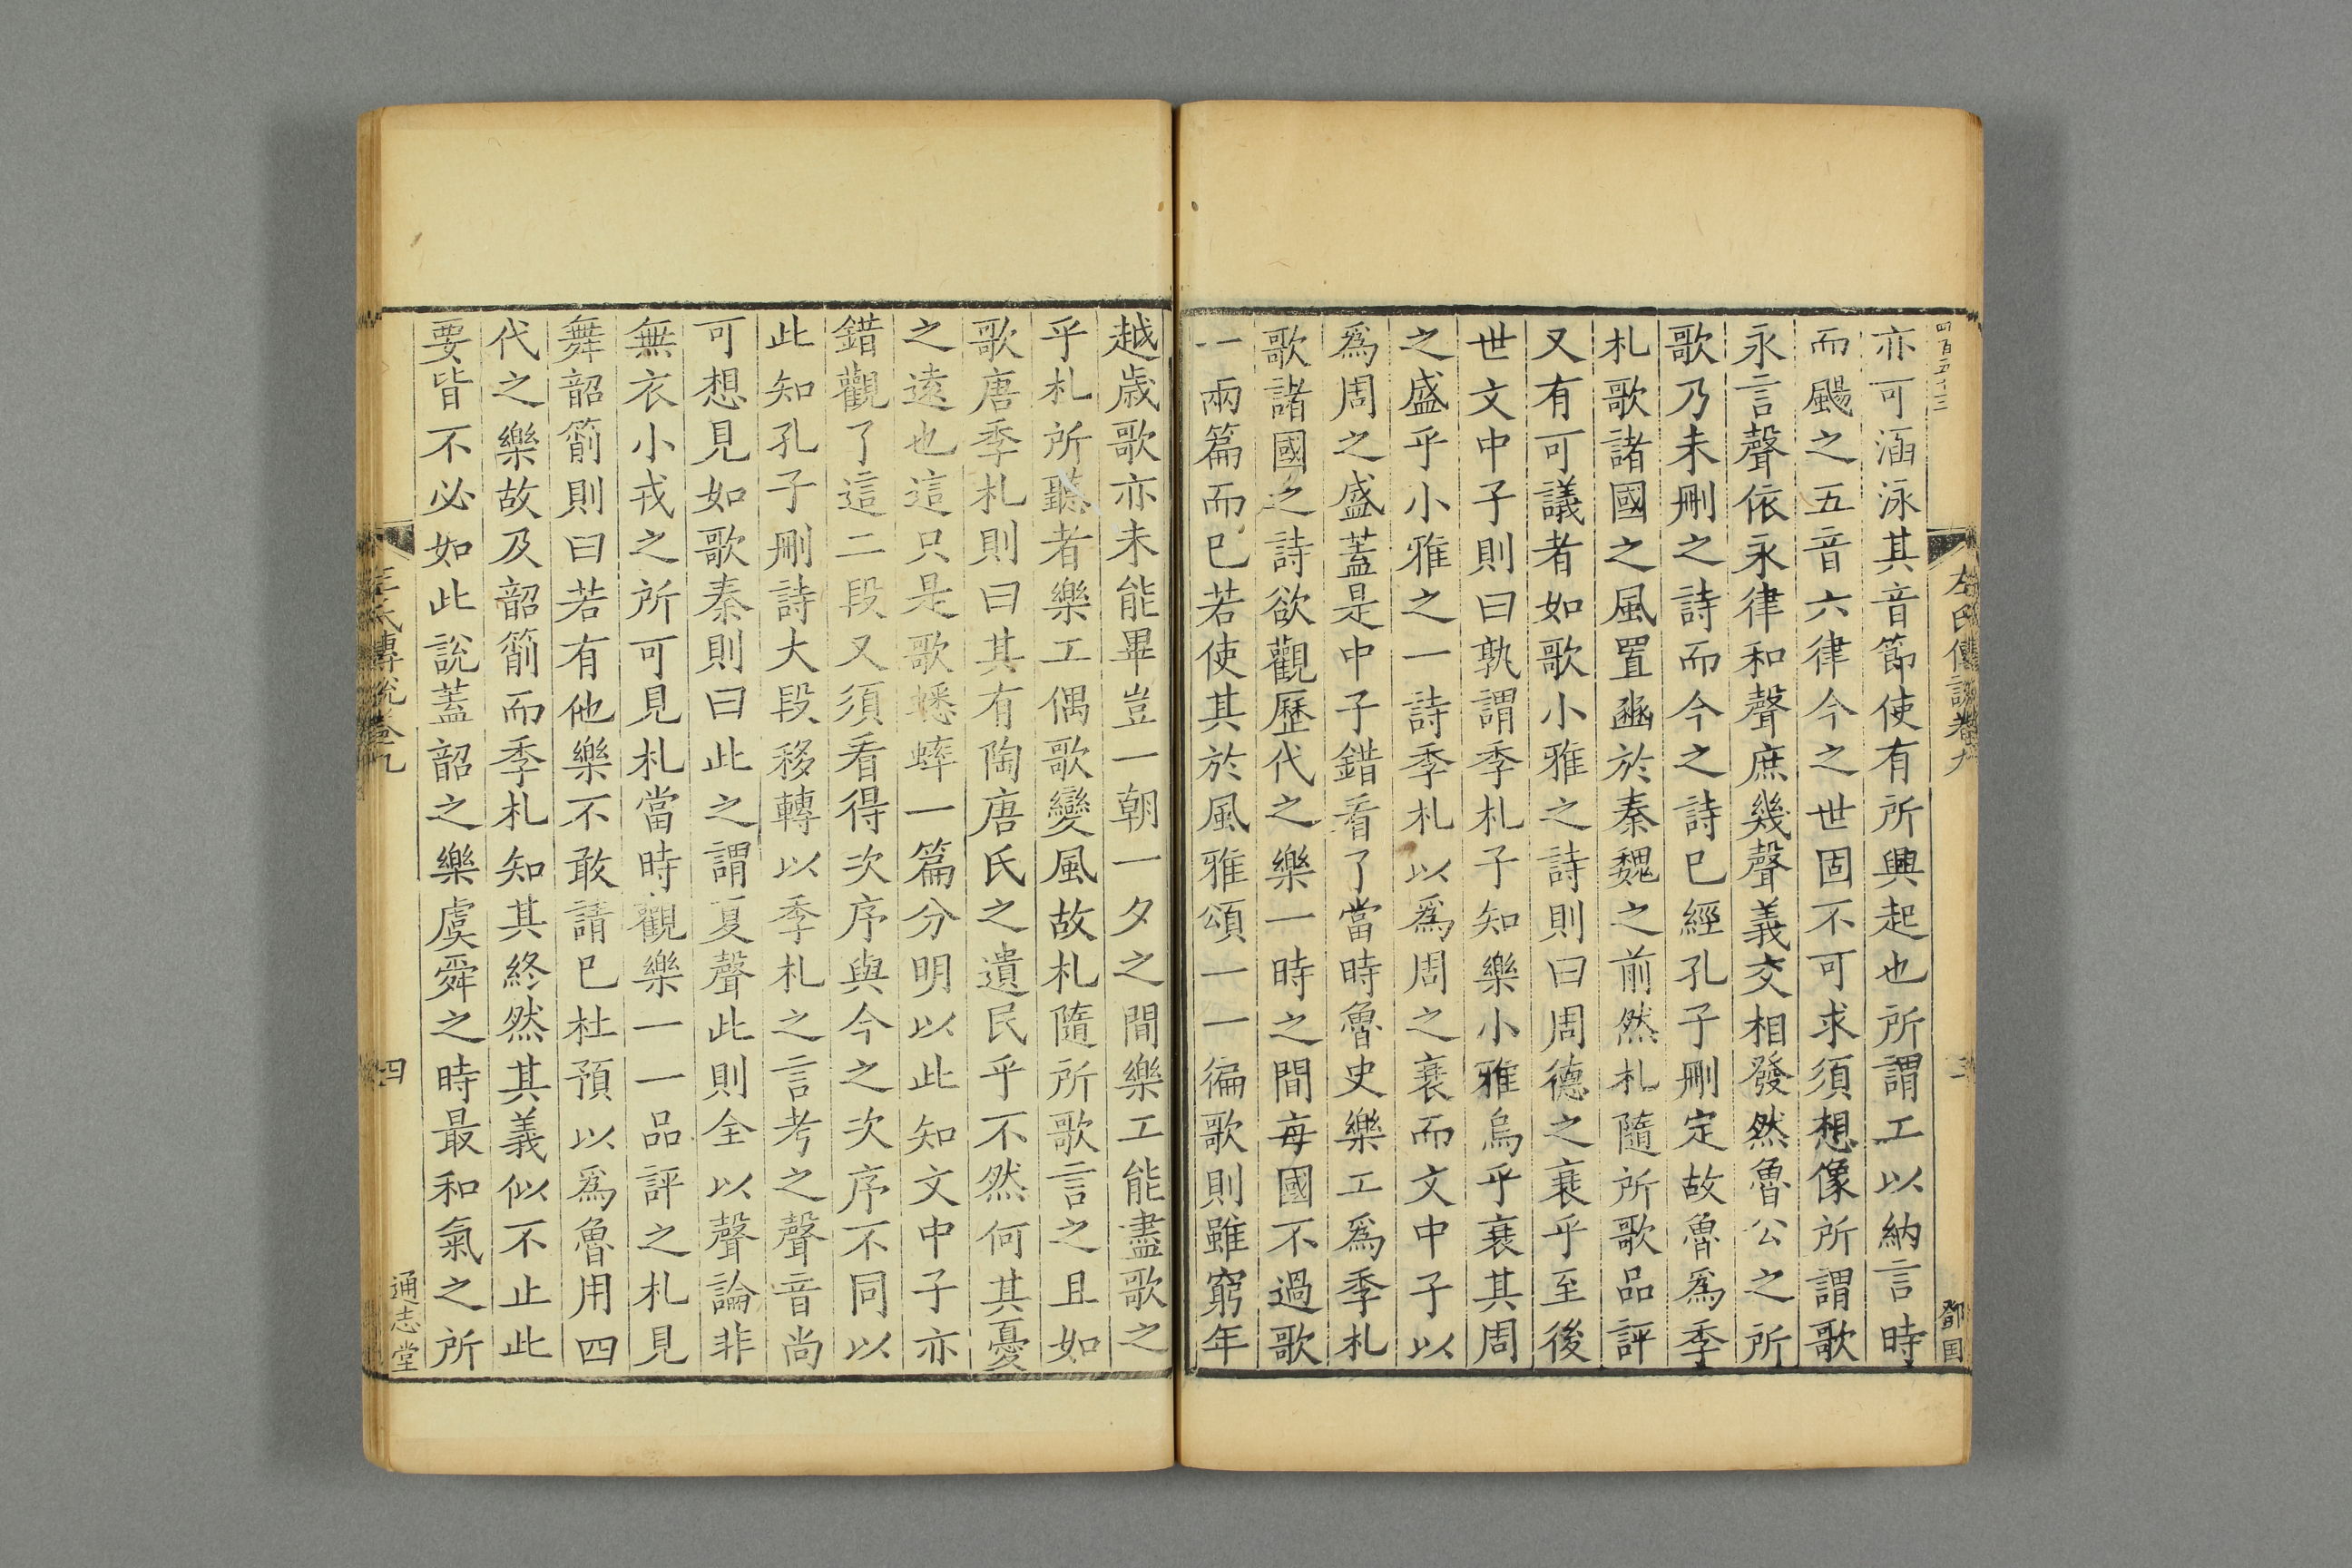 四百五十三
左氏傳說卷九
三
鄧国
亦可涵泳其音節使有所興起也所謂工以納言時
而颺之五音六律今之世固不可求須想像所謂歌
永言聲依永律和聲庶幾聲義交相發然魯公之所
歌乃未刪之詩而今之詩已經孔子刪定故魯爲季
札歌諸國之風置豳於秦魏之前然札隨所歌品評
又有可議者如歌小雅之詩則曰周德之衰乎至後
世文中子則曰孰謂季札子知樂小雅烏乎衰其周
之盛乎小雅之一詩季札以爲周之衰而文中子以
爲周之盛蓋是中子錯看了當時魯史樂工爲季札
歌諸國之詩欲觀歷代之樂一時之間每國不過歌
一兩篇而已若使其於風雅頌一一徧歌則雖窮年
越歲歌亦未能畢豈一朝一夕之間樂工能盡歌之
乎札所聽者樂工偶歌變風故札隨所歌言之且如
歌唐季札則曰其有陶唐氏之遺民乎不然何其憂
之遠也這只是歌蟋蟀一篇分明以此知文中子亦
錯觀了這二段又須看得次序與今之次序不同以
此知孔子刪詩大段移轉以季札之言考之聲音尚
可想見如歌秦則曰此之謂夏聲此則全以聲論非
無衣小戎之所可見札當時觀樂一一品評之札見
舞韶箾則曰若有他樂不敢請已杜預以爲魯用四
代之樂故及韶箾而季札知其終然其義似不止此
要皆不必如此說蓋韶之樂虞舜之時最和氣之所
左氏傳說卷九
四
通志堂